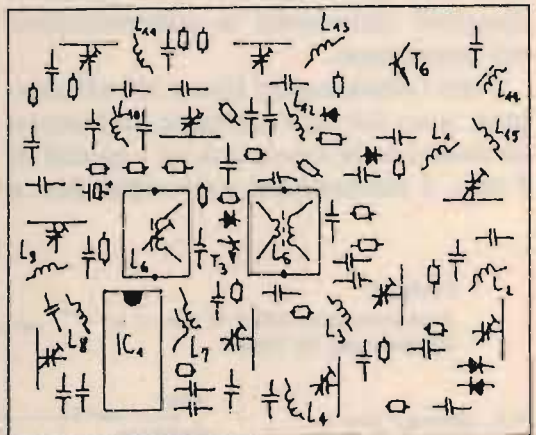 L11
L13
T6
L14
L10
L12
L1
L15
L9
L6
T3
L5
L2
L8
IC1
L7
L3
L4